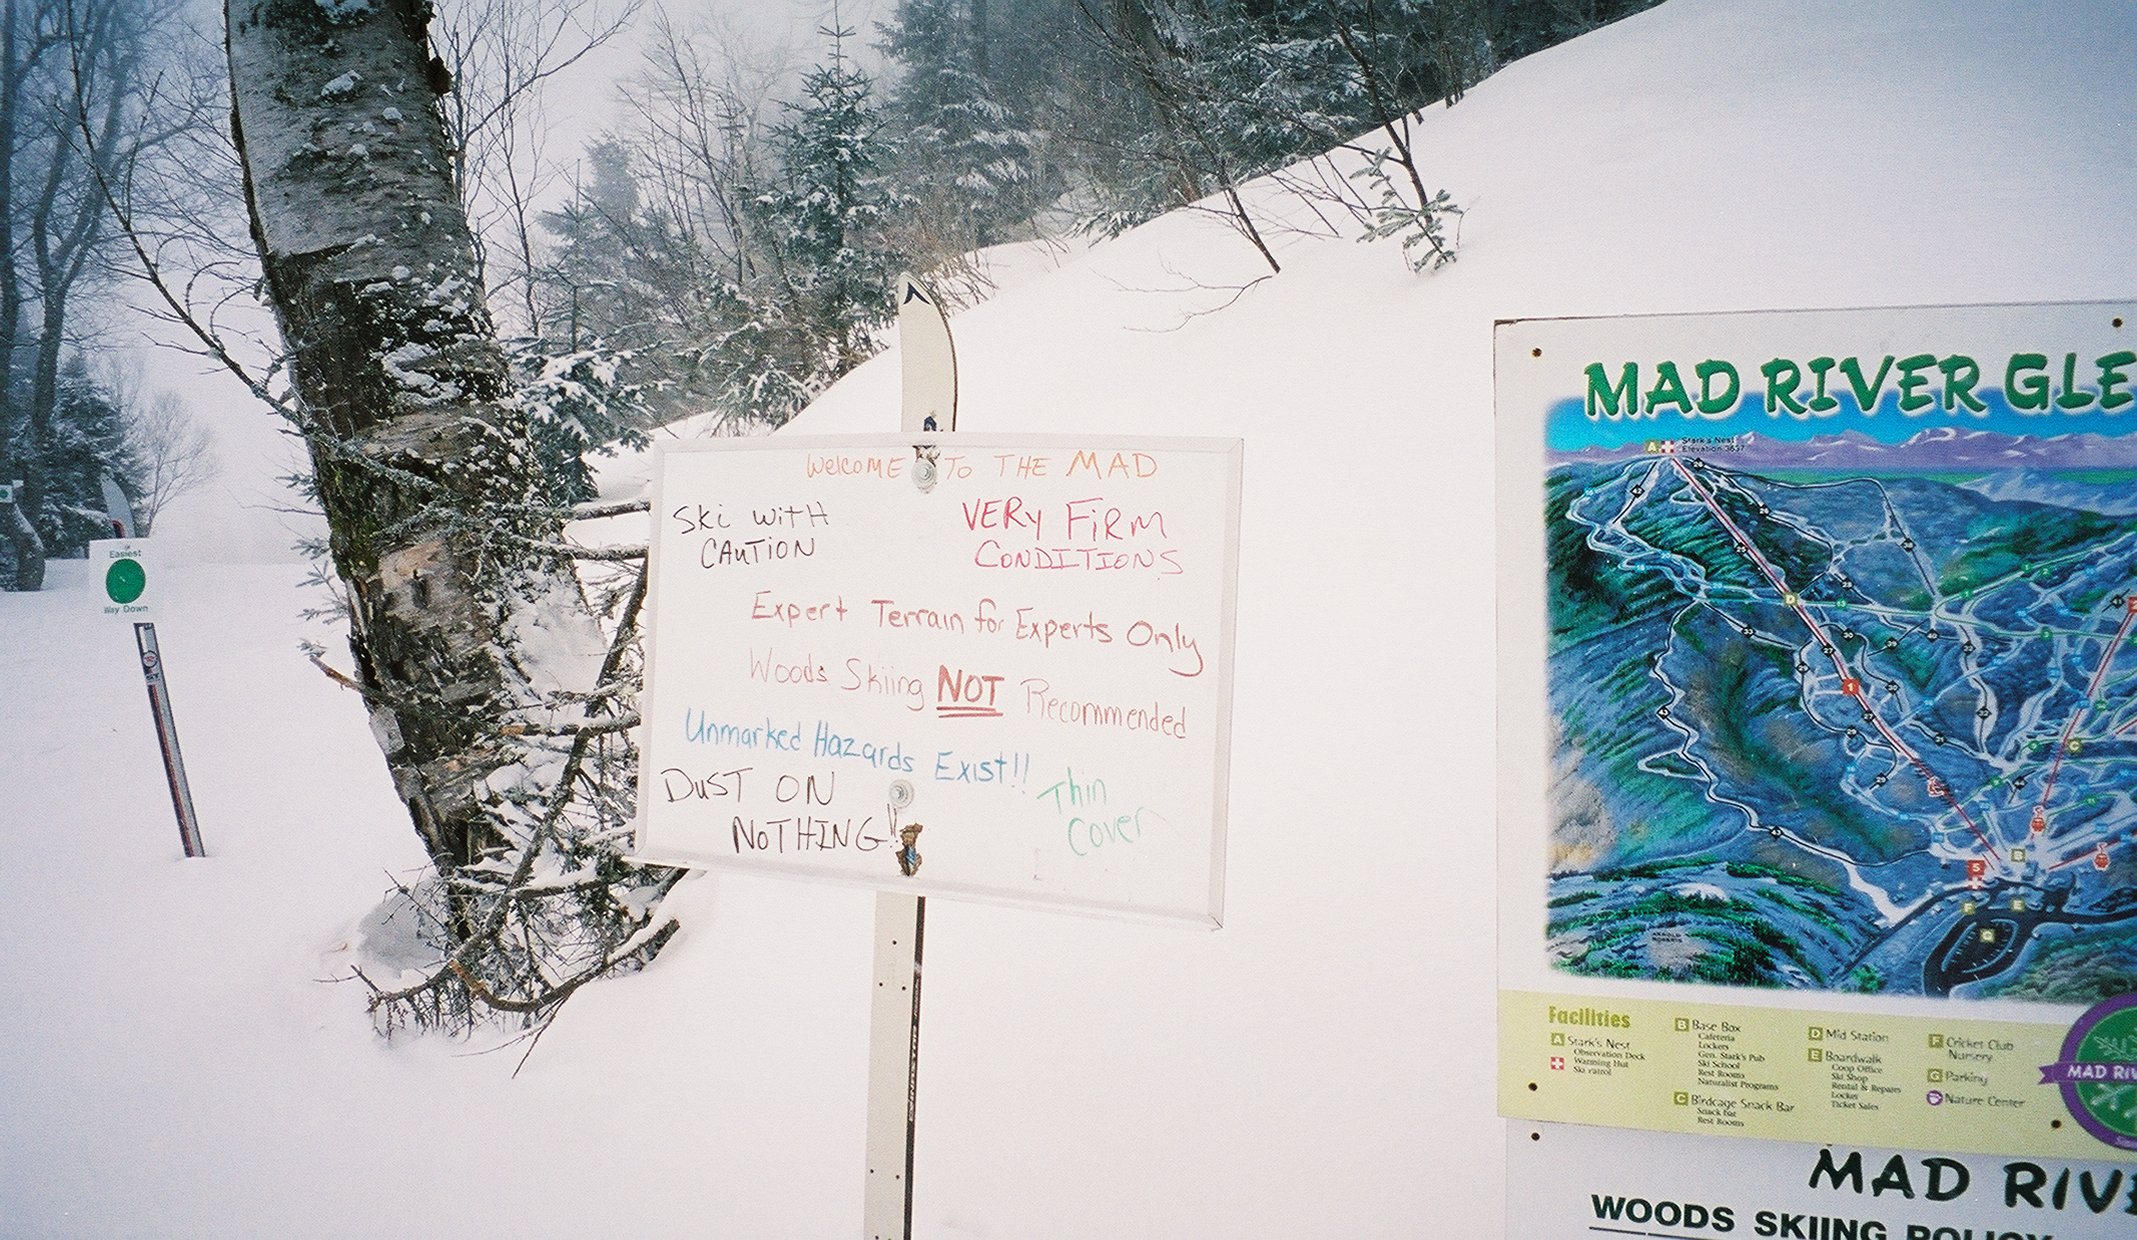 Easiest
Way Down
Welcome To THE MAD
Ski with
CAUTION
VERY FiRM
CONDITIONS
Expert Terrain for Experts Only
Woods Skiing NOT Recommended
Unmarked Hazards Exist!!
DUST ON
NOTHING!!
Thin
Cover
MAD RIVER GLE
Stark's Nest
Elevation 3637
Facilities
A Stark's Nest
Observation Deck
Warming Hut
Ski Patrol
B Base Box
Cafeteria
Lockers
Gen. Stark's Pub
Ski School
Rest Rooms
Naturalist Programs
C Birdcage Snack Bar
Snack Bar
Rest Rooms
D Mid Station
E Boardwalk
Coop Office
Ski Shop
Rental & Repairs
Locker
Ticket Sales
F Cricket Club
Nursery
G Parking
Nature Center
MAD RIV
MAD RIVE
WOODS SKIING POLICY